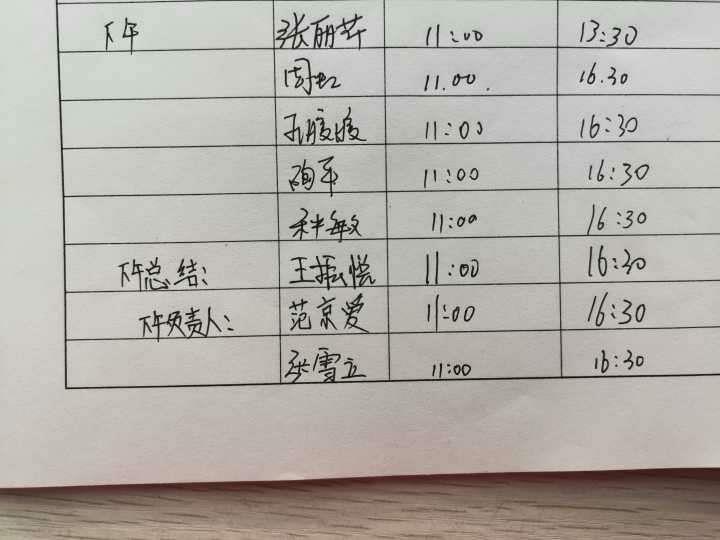 下午 张丽芹 11:00 13:30
周虹 11.00. 16.30
孔媛媛 11:00 16:30
陶军 11:00 16:30
敏 11:00 16:30
下午总结: 王振悦 11:00 16:30
下午负责人: 范京爱 11:00 16:30
张雪立 11:00 16:30